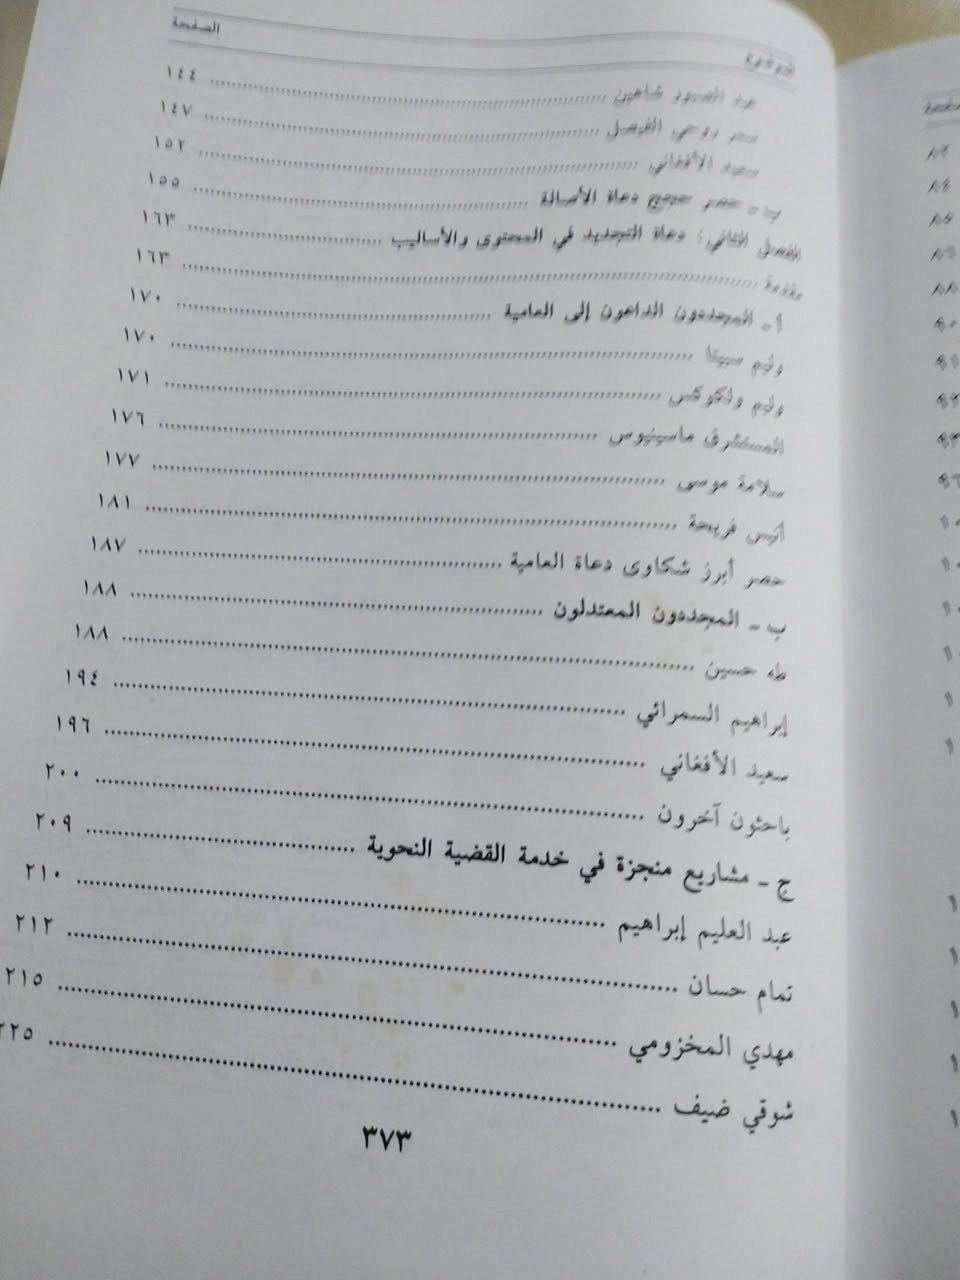 الموضوع الصفحة
عبد الصبور شاهين ١٤٤
سمر روحي الفيصل ١٤٧
سعيد الأفغاني ١٥٢
ب ـ حصر حجج دعاة الأصالة ١٥٥
الفصل الثاني: دعاة التجديد في المحتوى والأساليب ١٦٣
مقدمة ١٦٣
أ ـ المجددون الداعون إلى العامية ١٧٠
وليم سبيتا ١٧٠
وليم ولكوكس ١٧١
المستشرق ماسينيوس ١٧٦
سلامة موسى ١٧٧
أنيس فريحة ١٨١
حصر أبرز شكاوى دعاة العامية ١٨٧
ب ـ المجددون المعتدلون ١٨٨
طه حسين ١٨٨
إبراهيم السمرائي ١٩٤
سعيد الأفغاني ١٩٦
باحثون آخرون ٢٠٠
ج ـ مشاريع منجزة في خدمة القضية النحوية ٢٠٩
عبد العليم إبراهيم ٢١٠
تمام حسان ٢١٢
مهدي المخزومي ٢١٥
شوقي ضيف ٢٢٥
٣٧٣